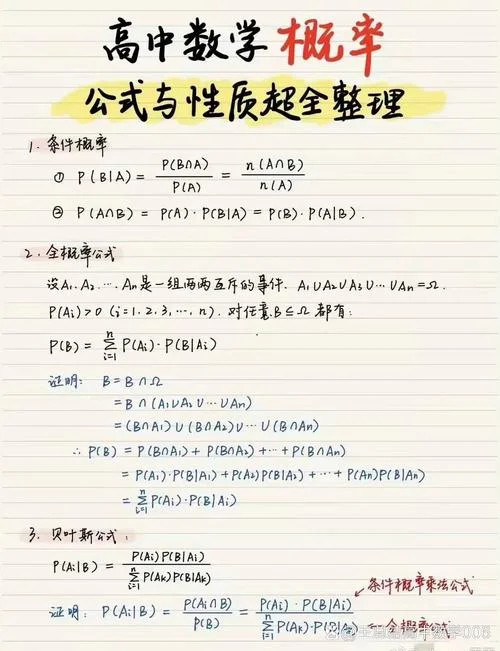 高中数学 概率
公式与性质超全整理
1. 条件概率
① P(B|A) = P(B∩A)/P(A) = n(A∩B)/n(A)
② P(A∩B) = P(A)·P(B|A) = P(B)·P(A|B).
2. 全概率公式
设A₁、A₂、…、Aₙ是一组两两互斥的事件. A₁∪A₂∪A₃∪…∪Aₙ=Ω.
P(Aᵢ)>0 (i=1,2,3,…,n). 对任意B⊆Ω 都有:
P(B) = ∑ᵢ₌₁ⁿ P(Aᵢ)·P(B|Aᵢ)
证明: B = B∩Ω
= B∩(A₁∪A₂∪…∪Aₙ)
= (B∩A₁)∪(B∩A₂)∪…∪(B∩Aₙ)
∴ P(B) = P(B∩A₁) + P(B∩A₂) + … + P(B∩Aₙ)
= P(A₁)·P(B|A₁) + P(A₂)P(B|A₂) + … + P(Aₙ)P(B|Aₙ)
= ∑ᵢ₌₁ⁿ P(Aᵢ)·P(B|Aᵢ)
3. 贝叶斯公式:
P(Aᵢ|B) = P(Aᵢ)P(B|Aᵢ)/∑ᵢ₌₁ⁿ P(Aₖ)P(B|Aₖ)
条件概率乘法公式
证明: P(Aᵢ|B) = P(Aᵢ∩B)/P(B) = P(Aᵢ)·P(B|Aᵢ)/∑ᵢ₌₁ⁿ P(Aₖ)·P(B|Aₖ) ← 全概率公式